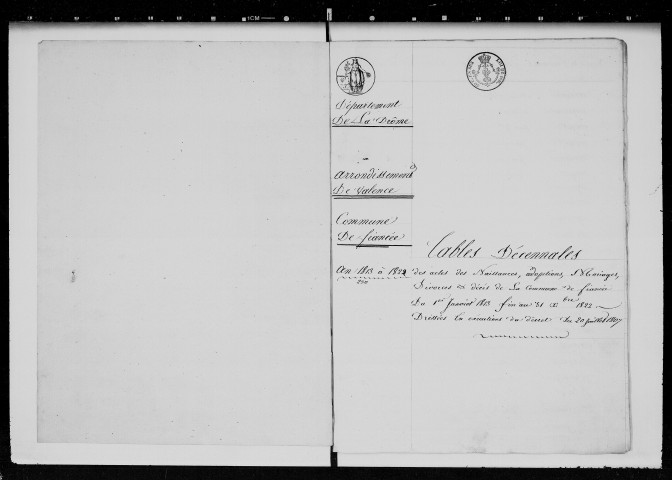 Département
De La Drôme
Arrondissement
De Valence
Commune
De fiancée
An 1813 à 1822
Tables Décennales
des actes des Naissances, adoptions, Mariages,
Divorces & décès de La Commune de fiancée
Du 1er Janvier 1813 fin au 31 Xbre 1822
Dressées En exécution du décret du 20 Juillet 1807